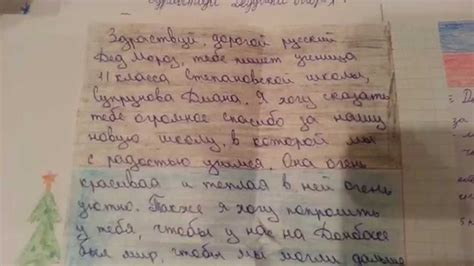 Здравствуй Дедушка Мороз!
Здраствуй, дорогой русский
Дед Мороз, тебе пишет ученица
11 класса Степановской школы,
Супрунова Диана. Я хочу сказать
тебе огромное спасибо за нашу
новую школу, в которой мы
с радостью учимся. Она очень
красивая и теплая в ней очень
уютно. Также я хочу попросить
у тебя, чтобы у нас на Донбассе
был мир, чтобы мы могли дальше